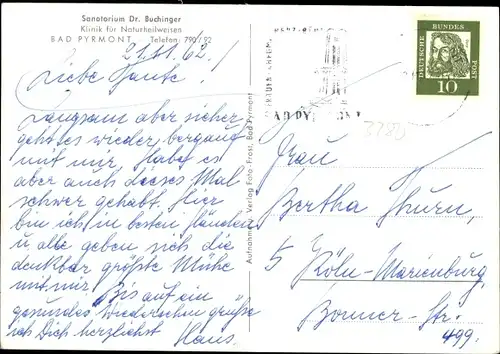 Sanatorium Dr. Buchinger
Klinik für Naturheilweisen
BAD PYRMONT Telefon: 790/92
21.11.62.
Liebe Tante!
Langsam aber sicher
geht es wieder bergauf
mit mir. Habe es
aber auch dieses Mal
schwer gehabt. Hier
bin ich in besten Händen
u. alle geben sich die
denkbar größte Mühe
mit mir. Bis auf ein
gesundes Wiedersehen grüße
ich Dich herzlichst Hans.
Aufnahme u. Verlag Foto: Frost, Bad Pyrmont
BAD PYRMONT
DEUTSCHE BUNDES POST
10
Frau
Bertha Thurn,
5 Köln-Marienburg
Bonner-Str.
499.